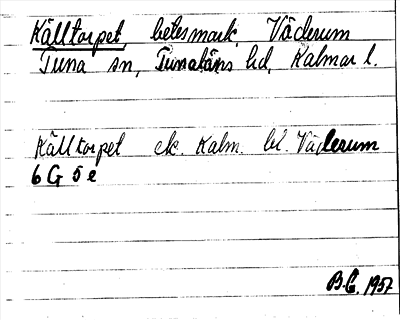 Källtorpet, betesmark, Väderum
Tuna sn, Tunaläns hd, Kalmar l.
Källtorpet ek. Kalm. bl. Väderum
6 G 5 e
B.E. 1957